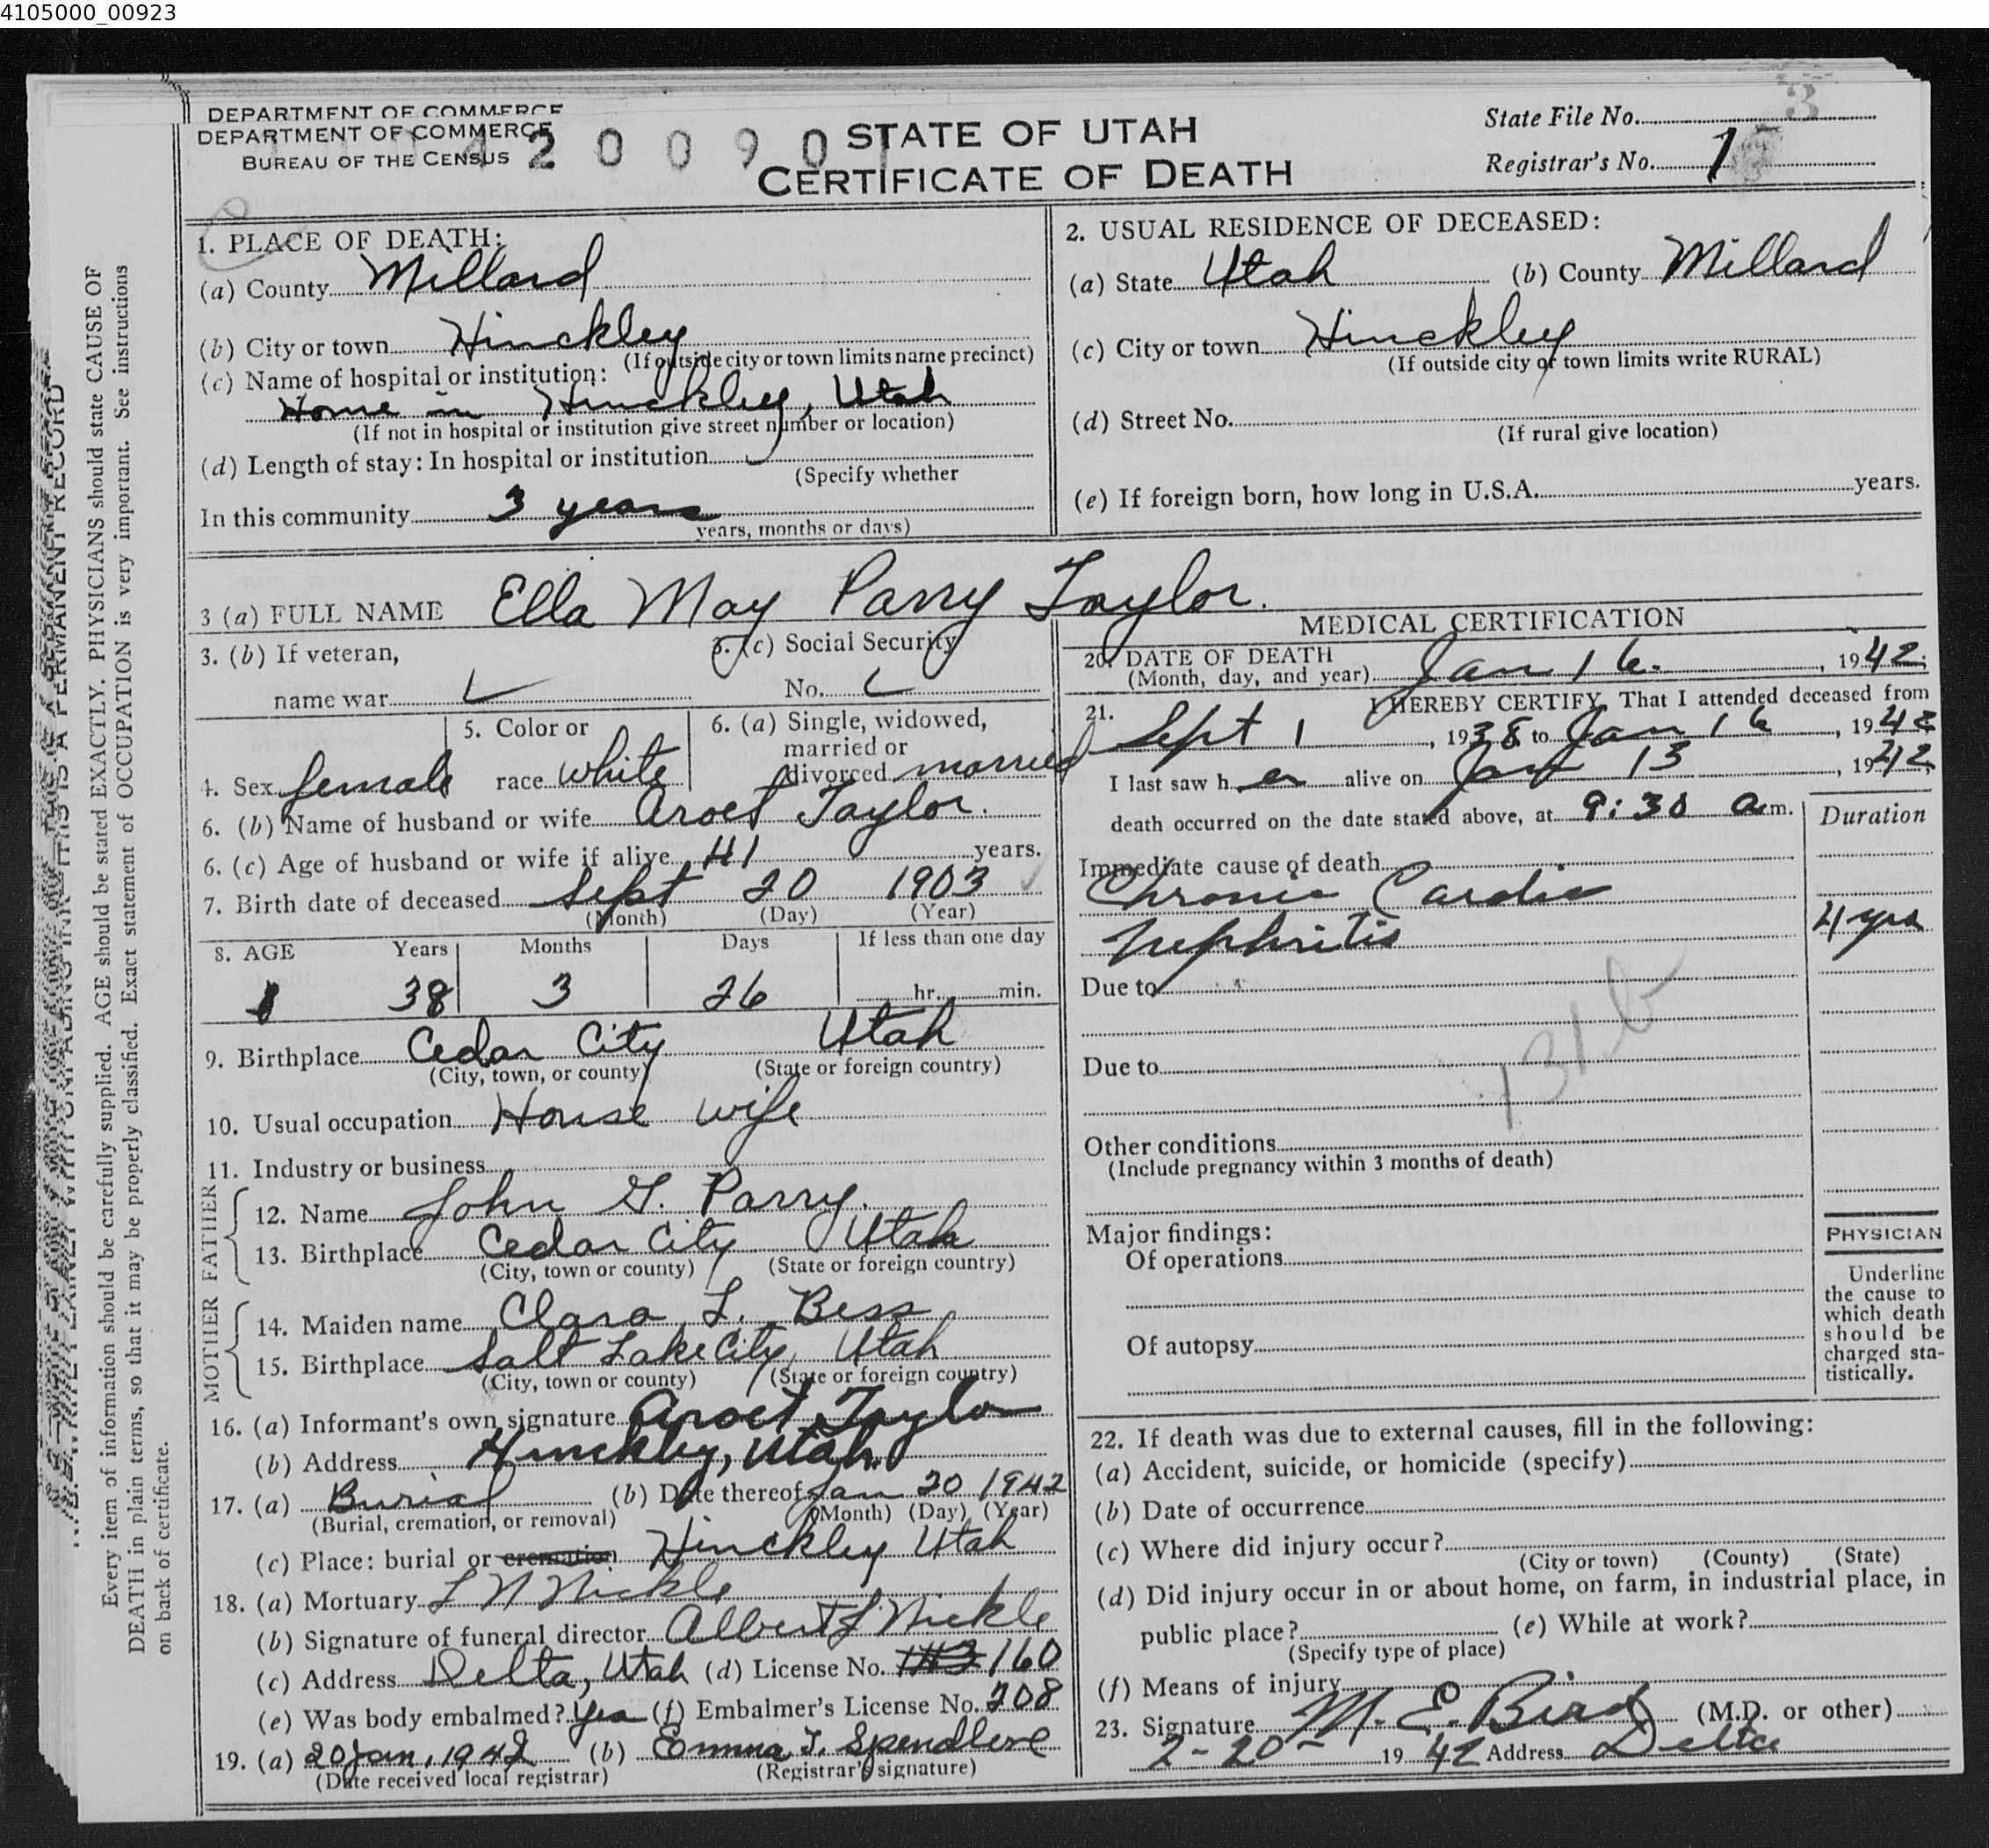 4105000_00923
DEPARTMENT OF COMMERCE
DEPARTMENT OF COMMERCE
BUREAU OF THE CENSUS
4 2 0 0 9 0
STATE OF UTAH
CERTIFICATE OF DEATH
State File No. 3
Registrar's No. 1
1. PLACE OF DEATH:
(a) County Millard
(b) City or town Hinckley
(If outside city or town limits name precinct)
(c) Name of hospital or institution:
Home in Hinckley, Utah
(If not in hospital or institution give street number or location)
(d) Length of stay: In hospital or institution
(Specify whether
In this community 3 years
years, months or days)
2. USUAL RESIDENCE OF DECEASED:
(a) State Utah (b) County Millard
(c) City or town Hinckley
(If outside city or town limits write RURAL)
(d) Street No.
(If rural give location)
(e) If foreign born, how long in U.S.A. years.
3 (a) FULL NAME Ella May Parry Taylor.
3. (b) If veteran,
name war
3. (c) Social Security
No.
4. Sex female
5. Color or
race white
6. (a) Single, widowed,
married or
divorced married
6. (b) Name of husband or wife Aroet Taylor.
6. (c) Age of husband or wife if alive 41 years.
7. Birth date of deceased Sept 20 1903
(Month) (Day) (Year)
8. AGE Years Months Days If less than one day
38 3 26 hr. min.
9. Birthplace Cedar City Utah
(City, town, or county) (State or foreign country)
10. Usual occupation House wife
11. Industry or business
FATHER
12. Name John G. Parry.
13. Birthplace Cedar City Utah
(City, town or county) (State or foreign country)
MOTHER
14. Maiden name Clara L. Bess
15. Birthplace Salt Lake City, Utah
(City, town or county) (State or foreign country)
16. (a) Informant's own signature Aroet Taylor
(b) Address Hinckley, Utah.
17. (a) Burial (b) Date thereof Jan 20 1942
(Burial, cremation, or removal) (Month) (Day) (Year)
(c) Place: burial or cremation Hinckley Utah
18. (a) Mortuary L N Nickle
(b) Signature of funeral director Albert L Nickle
(c) Address Delta, Utah (d) License No. 160
(e) Was body embalmed? Yes (f) Embalmer's License No. 208
19. (a) 20 Jan, 1942 (b) Emma T. Spendlove
(Date received local registrar) (Registrar's signature)
MEDICAL CERTIFICATION
20. DATE OF DEATH
(Month, day, and year) Jan 16. , 1942
21. I HEREBY CERTIFY, That I attended deceased from
Sept 1 , 1938 to Jan 16 , 1942
I last saw h er alive on Jan 13 , 1942
death occurred on the date stated above, at 9:30 a.m.
Duration
Immediate cause of death
Chronic Cardio
Nephritis
4 yrs
Due to
Due to
131b
Other conditions
(Include pregnancy within 3 months of death)
Major findings:
Of operations
Of autopsy
PHYSICIAN
Underline
the cause to
which death
should be
charged sta-
tistically.
22. If death was due to external causes, fill in the following:
(a) Accident, suicide, or homicide (specify)
(b) Date of occurrence
(c) Where did injury occur?
(City or town) (County) (State)
(d) Did injury occur in or about home, on farm, in industrial place, in
public place? (e) While at work?
(Specify type of place)
(f) Means of injury
23. Signature M. E. Bird (M.D. or other)
2-20- 1942 Address Delta
Every item of information should be carefully supplied. AGE should be stated EXACTLY. PHYSICIANS should state CAUSE OF
DEATH in plain terms, so that it may be properly classified. Exact statement of OCCUPATION is very important. See instructions
on back of certificate.